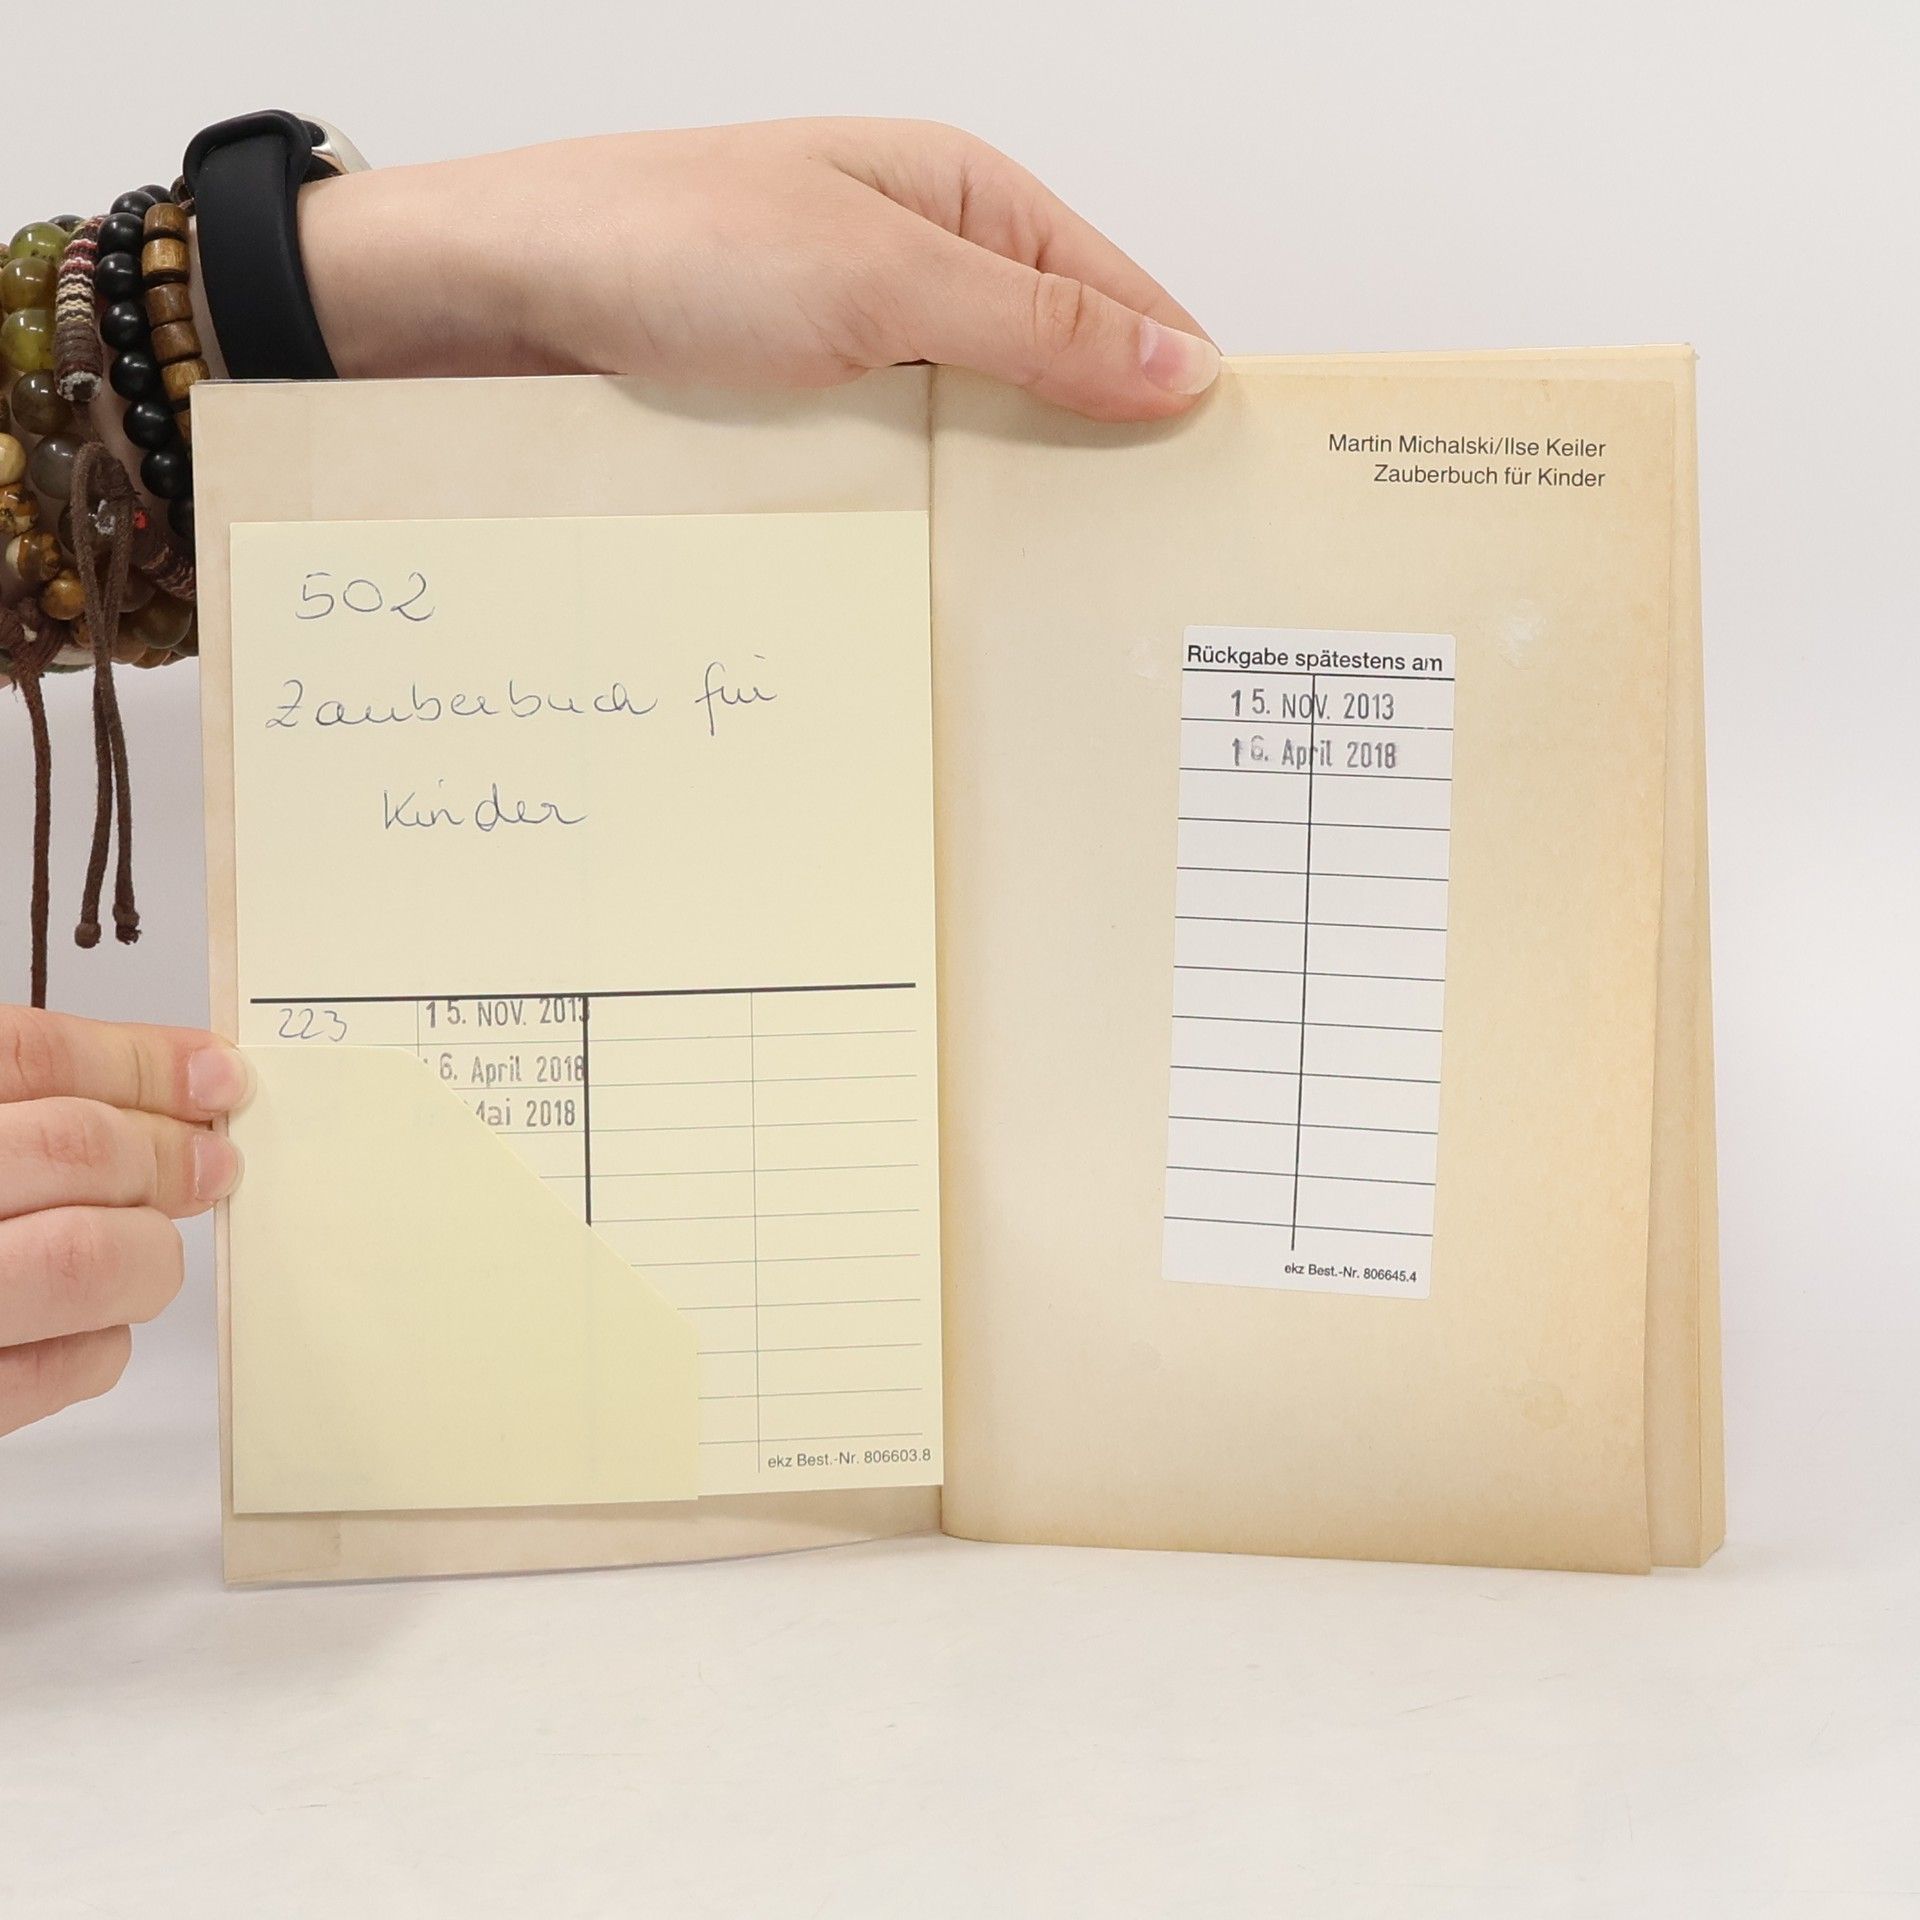 502
Zauberbuch für
Kinder
223
15. NOV. 2013
6. April 2018
Mai 2018
ekz Best.-Nr. 806603.8
Martin Michalski/Ilse Keiler
Zauberbuch für Kinder
Rückgabe spätestens am
15. NOV. 2013
16. April 2018
ekz Best.-Nr. 806645.4